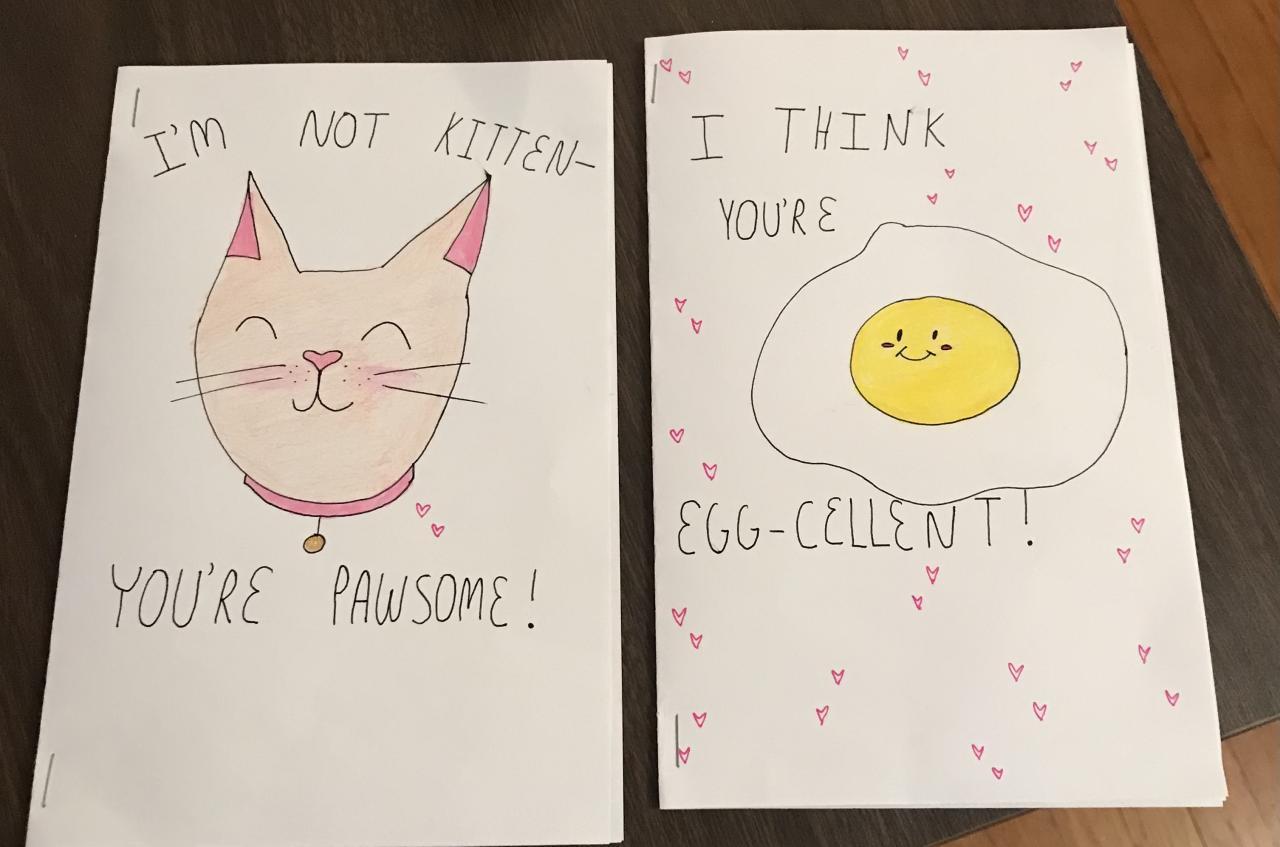 I'M NOT KITTEN-
YOU'RE PAWSOME!
I THINK
YOU'RE
EGG-CELLENT!